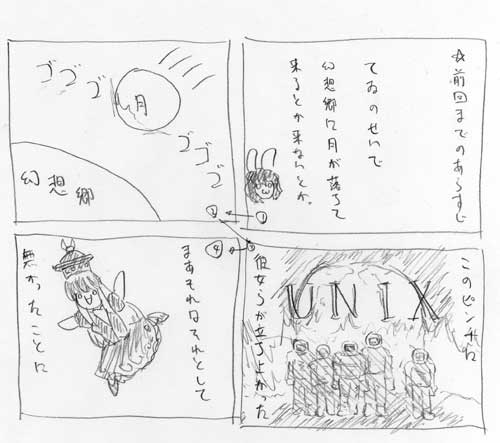 ☆前回までのあらすじ
てゐのせいで
幻想郷に月が落ちて
来るとか来ないとか。
①
ゴゴゴ
月
ゴゴゴ
幻想郷
②
③
このピンチに
UNIX
彼女らが立ち上がった
④
まあそれはそれとして
無かったことに